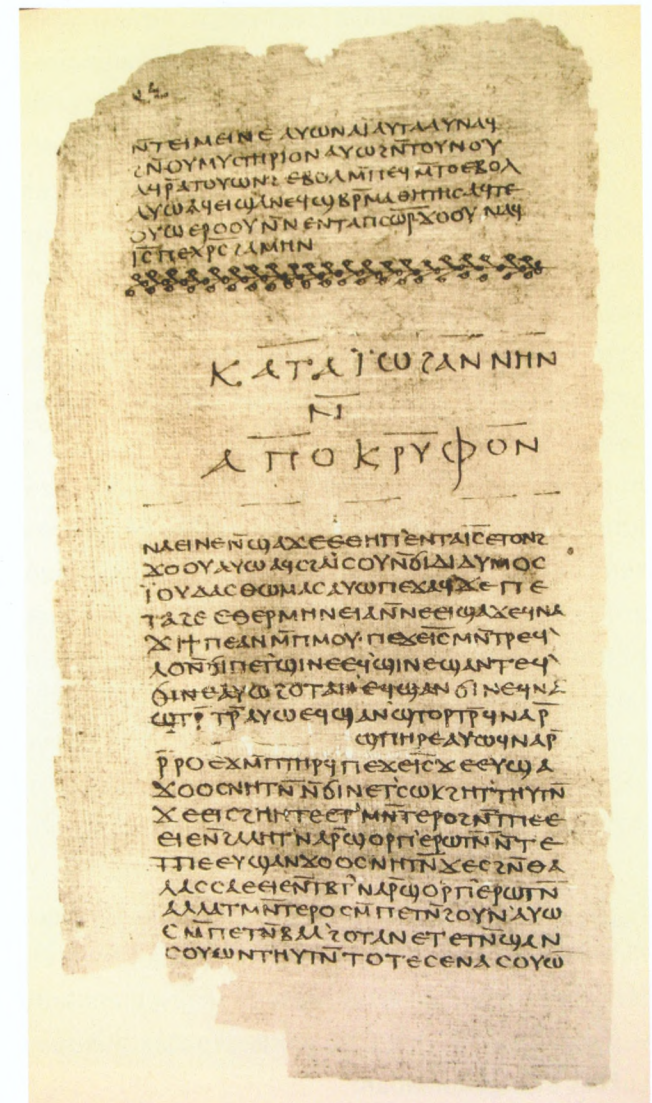 ⲛ̄ⲧⲉⲓⲙⲉⲓⲛⲉ ⲁⲩⲱ ⲛⲁⲓ̈ ⲁⲩⲧⲁⲁⲩ ⲛⲁϥ
ϩⲛ̄ⲟⲩⲙⲩⲥⲧⲏⲣⲓⲟⲛ ⲁⲩⲱ ϩⲛ̄ⲧⲟⲩⲛⲟⲩ
ⲁϥⲣ̄ⲁⲧⲟⲩⲱⲛϩ ⲉⲃⲟⲗ ⲙ̄ⲡⲉϥⲙ̄ⲧⲟ ⲉⲃⲟⲗ
ⲁⲩⲱ ⲁϥⲉⲓ ϣⲁⲛⲉϥϣⲃⲣ̄ⲙⲁⲑⲏⲧⲏⲥ ⲁϥⲧⲉ
ⲟⲩⲱ ⲉⲣⲟⲟⲩ ⲛ̄ⲛⲉⲛⲧⲁⲡⲥⲱ̅ⲣ̅ ϫⲟⲟⲩ ⲛⲁϥ
ⲓ̅ⲥ̅ ⲡⲉⲭ̅ⲣ̅ⲥ̅ ϩⲁⲙⲏⲛ
ⲕⲁⲧⲁ ⲓ̈ⲱϩⲁⲛⲛⲏⲛ
ⲛ̄
ⲁⲡⲟⲕⲣⲩⲫⲟⲛ
ⲛⲁⲉⲓ ⲛⲉ ⲛ̄ϣⲁϫⲉ ⲉⲑⲏⲡ ⲉⲛⲧⲁⲓ̅ⲥ̅ ⲉⲧⲟⲛϩ
ϫⲟⲟⲩ ⲁⲩⲱ ⲁϥⲥϩⲁⲓ̈ⲥⲟⲩ ⲛ̄ϭⲓ ⲇⲓⲇⲩⲙⲟⲥ
ⲓ̈ⲟⲩⲇⲁⲥ ⲑⲱⲙⲁⲥ ⲁⲩⲱ ⲡⲉϫⲁϥ ϫⲉ ⲡⲉ
ⲧⲁϩⲉ ⲉⲑⲉⲣⲙⲏⲛⲉⲓⲁ ⲛ̄ⲛⲉⲉⲓϣⲁϫⲉ ϥⲛⲁ
ϫⲓϯⲡⲉ ⲁⲛ ⲙ̄ⲡⲙⲟⲩ ⲡⲉϫⲉⲓ̅ⲥ̅ ⲙⲛ̄ⲧⲣⲉϥ
ⲗⲟ ⲛ̄ϭⲓ ⲡⲉⲧϣⲓⲛⲉ ⲉϥϣⲓⲛⲉ ϣⲁⲛⲧⲉϥ
ϭⲓⲛⲉ ⲁⲩⲱ ϩⲟⲧⲁⲛ ⲉϥϣⲁⲛϭⲓⲛⲉ ϥⲛⲁ
ϣⲧⲣ̄ⲧⲣ̄ ⲁⲩⲱ ⲉϥϣⲁⲛϣⲧⲟⲣⲧⲣ̄ ϥⲛⲁⲣ̄
ϣⲡⲏⲣⲉ ⲁⲩⲱ ϥⲛⲁⲣ̄
ⲣ̄ⲣⲟ ⲉϫⲙ̄ⲡⲧⲏⲣϥ ⲡⲉϫⲉⲓ̅ⲥ̅ ϫⲉ ⲉⲩϣⲁ
ϫⲟⲟⲥ ⲛⲏⲧⲛ̄ ⲛ̄ϭⲓ ⲛⲉⲧⲥⲱⲕ ϩⲏⲧⲧⲏⲩⲧⲛ̄
ϫⲉ ⲉⲓⲥϩⲏⲏⲧⲉ ⲉⲧⲙⲛ̄ⲧⲉⲣⲟ ϩⲛ̄ⲧⲡⲉ ⲉ
ⲉⲓⲉ ⲛ̄ϩⲁⲗⲏⲧ ⲛⲁⲣ̄ϣⲟⲣⲡ ⲉⲣⲱⲧⲛ̄ ⲛ̄ⲧⲉ
ⲧⲡⲉ ⲉⲩϣⲁⲛϫⲟⲟⲥ ⲛⲏⲧⲛ̄ ϫⲉ ⲥϩⲛ̄ⲑⲁ
ⲗⲁⲥⲥⲁ ⲉⲉⲓⲉ ⲛ̄ⲧⲃⲧ ⲛⲁⲣ̄ϣⲟⲣⲡ ⲉⲣⲱⲧⲛ̄
ⲁⲗⲗⲁ ⲧⲙⲛ̄ⲧⲉⲣⲟ ⲥⲙ̄ⲡⲉⲧⲛ̄ϩⲟⲩⲛ ⲁⲩⲱ
ⲥⲙ̄ⲡⲉⲧⲛ̄ⲃⲁⲗ ϩⲟⲧⲁⲛ ⲉⲧⲉⲧⲛ̄ϣⲁⲛ
ⲥⲟⲩⲱⲛⲧⲏⲩⲧⲛ̄ ⲧⲟⲧⲉ ⲥⲉⲛⲁⲥⲟⲩⲱ